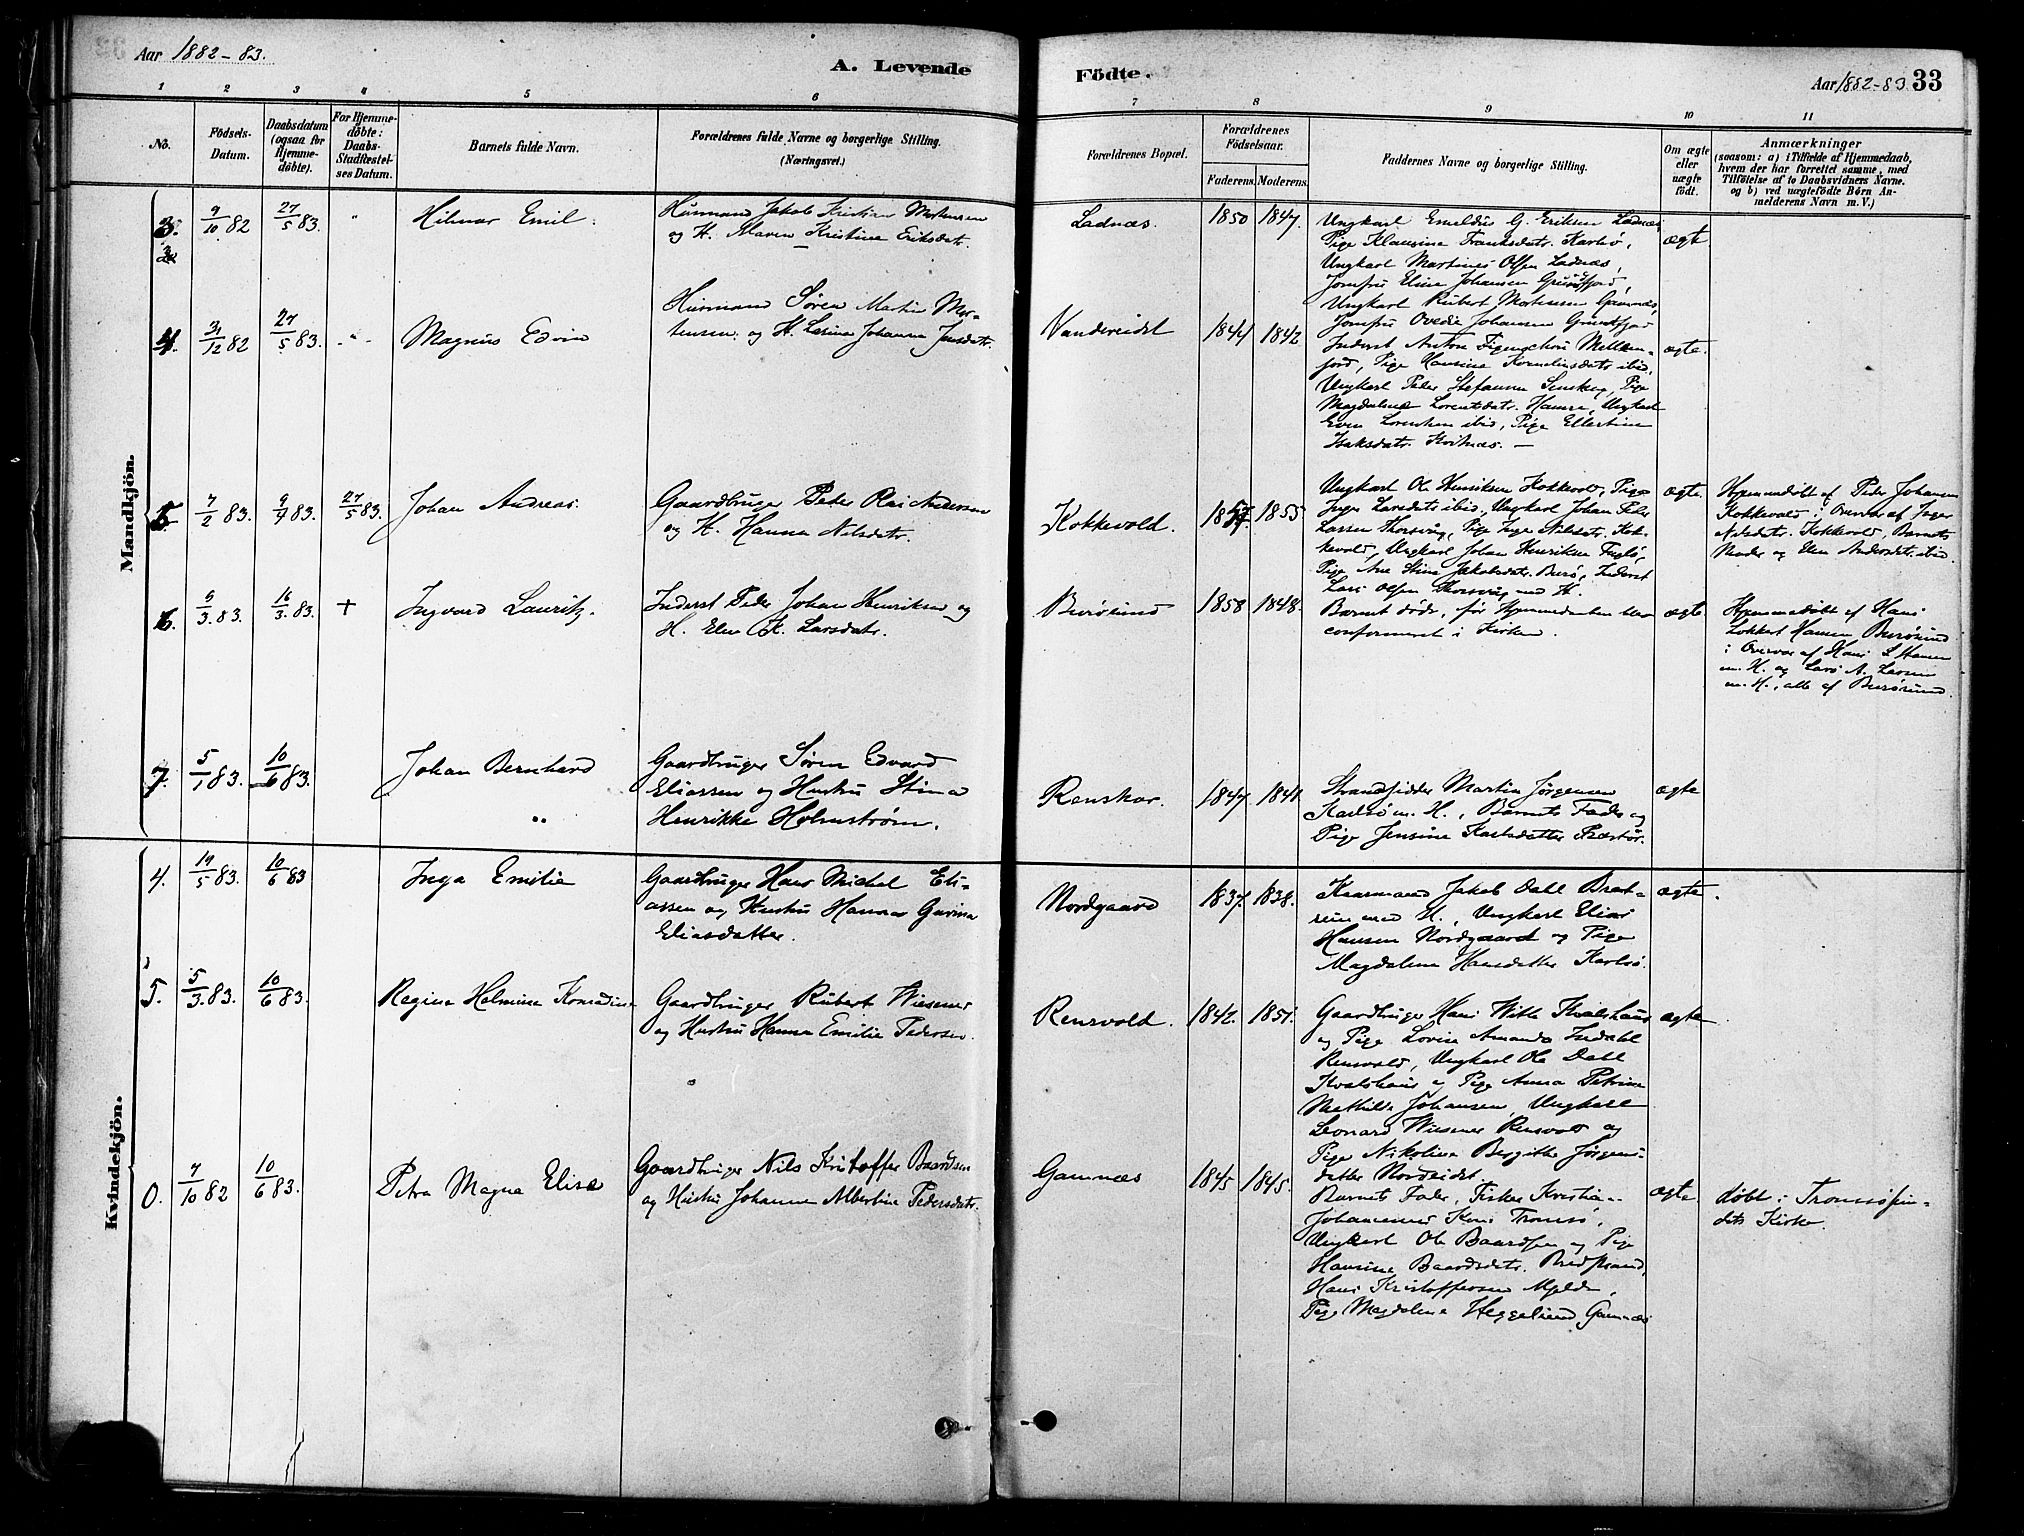 Aar 1882-83.
A. Levende
Födte.
Aar 1882-83
33
1 2 3 4 5 6 7 8 9 10 11
No.
Födsels-
Datum.
Daabsdatum
(ogsaa for
Hjemme-
döbte).
For Hjemme-
döbte:
Daabs-
Stadfæstel-
ses Datum.
Barnets fulde Navn.
Forældrenes fulde Navne og borgerlige Stilling.
(Næringsvei.)
Forældrenes Bopæl.
Forældrenes
Födselsaar.
Faderens. Moderens.
Faddernes Navne og borgerlige Stilling.
Om ægte
eller
uægte
födt.
Anmærkninger
(saasom: a) i Tilfælde af Hjemmedaab,
hvem der har forrettet samme, med
Tilföielse af to Daabsvidners Navne.
og b) ved uægtefödte Börn An-
melderens Navn m. V.)
Mandkjön.
3. 9/10 82 27/5 83. " Hilmar Emil.
Husmand Jakob Kristian Mortensen
og H. Maren Kristine Eriksdatr.
Ladnæs. 1850 1847.
Ungkarl Emeldus G. Eriksen Ladnæs,
Pige Klausine Franksdatr. Karlsø,
Ungkarl Martines Olsen Ladnæs,
Jomfru Eline Johansen Grundfjord,
Ungkarl Rubert Mortensen Gamnæs,
Jomfru Ovedie Johansen Grundfjord
ægte.
4. 31/12 82 27/5 83. Magnus Edvin
Husmand Søren Martin Mor-
tensen og H. Lesina Johanna Jensdatr.
Vandereidet 1844 1842
Inderst Anton Figenschou Mellem-
fjord, Pige Hansine Kornelinsdatr ibid,
Ungkarl Peder Stefanus, Pige
Magdalene Lorentsdatr. Hamre, Ungkarl
Even Lorentsen ibid, Pige Ellertine
Isaksdatr. Kvitnæs. —
ægte.
5 7/2 83. 9/4 83. 27/5 83. Johan Andreas.
Gaardbruger Peder Rasi Andersen
og H. Hanna Nilsdatr.
Kokkevold. 1857 1855
Ungkarl Ole Henriksen Kokkevold, Pige
Inger Larsdatr ibid, Ungkarl Johan Peder
Larsen Thorsvåg, Pige Inger Nilsdatr. Kok-
kevold, Ungkarl Johan Henriksen Fuglø,
Pige Ane Stine Jakobsdatr. Burø, Inderst
Lars Olsen Thorsvåg med H.
ægte.
Hjemmedøbt af Peder Johansen
Kokkevold i Overvær af Inger
Nilsdatr. Kokkevold, Barnets
Moder og Elen Andersdatr. ibid
6. 5/3 83. 16/3 83. + Ingvard Lauritz.
Inderst Peder Johan Henriksen og
H. Elen K. Larsdatr.
Burøsund 1858 1848.
Barnet døde, før Hjemmedaaben blev
conformeret i Kirken.
ægte
Hjemmedøbt af Hans
Lokkert Hansen Burøsund
i Overvær af Hans L Hansen
m. H. og Lars A. Larsen
m. H., alle af Burøsund.
7. 5/1 83. 10/6 83. Johan Bernhard
Gaardbruger Søren Edvard
Eliassen og Hustru Stina
Henrikke Holmstrøm.
Renskar. 1847. 1841
Strandsidder Martin Jørgensen
Karlsø m. H., Barnets Fader og
Pige Jensine Karlsdatter Præstør.
ægte
Kvindekjön.
4. 19/5 83. 10/6 83 Inga Emilie
Gaardbruger Hans Michal Eli-
assen og Hustru Hanna Gurina
Eliasdatter.
Nordgaard 1837. 1838.
Kaarmand Jakob Dahl Brat-
rein med H., Ungkarl Elias
Hansen Nordgaard og Pige
Magdalene Hansdatter Karlsø.
ægte.
5. 5/3 83. 10/6 83. Regine Helmine Konradine
Gaardbruger Rubert Wiesener
og Hustru Hanna Emilie Pedersen.
Rensvold. 1842. 1851.
Gaardbruger Hans Wilh Kvalshaus
og Pige Lovise Amanda Indahl
Rensvold, Ungkarl Ole Dahl
Kvalshaus og Pige Anna Petrine
Mathilde Johansen, Ungkarl
Leonard Wiesener Rensvold og
Pige Nikoline Bergitte Jørgens-
datter Nordeidet.
ægte
0. 7/10 82 10/6 83. Petra Magna Elise
Gaardbruger Nils Kristoffer Baardsen
og Hustru Johanne Albertine Pedersdatr.
Gamnæs 1845 1845.
Barnets Fader, Fisker Kristian
Johannesen Tromsø,
Ungkarl Ole Baardsen og Pige
Hansine Baardsdatr. Bredstrand,
Hans Kristoffersen Mjelde,
Pige Magdalene Heggelund, Gamnæs
ægte
døbt i Tromsøsun-
dets Kirke.